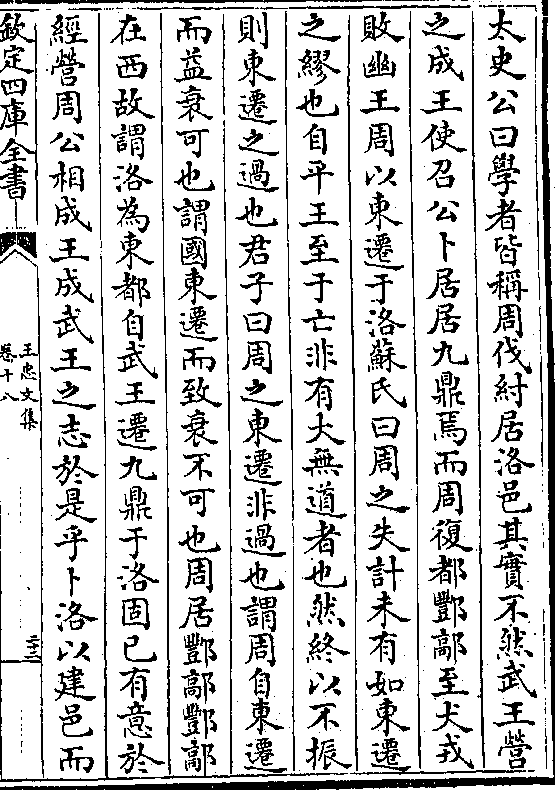 太史公曰學者皆稱周伐紂居洛邑其實不然武王營
之成王使召公卜居居九鼎焉而周復都酆鄗至犬戎
敗幽王周以東遷于洛蘇氏曰周之失計未有如東遷
之繆也自平王至于亡非有大無道者也然終以不振
則東遷之過也君子曰周之東遷非過也謂周自東遷
而益衰可也謂國東遷而致衰不可也周居酆鄗酆鄗
在西故謂洛為東都自武王遷九鼎于洛固已有意於
經營周公相成王成武王之志於是乎卜洛以建邑而
欽定四庫全書
王忠文集
卷十八
二十三